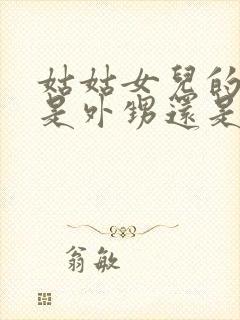 姑姑女兒的
是外甥還是
翁敏